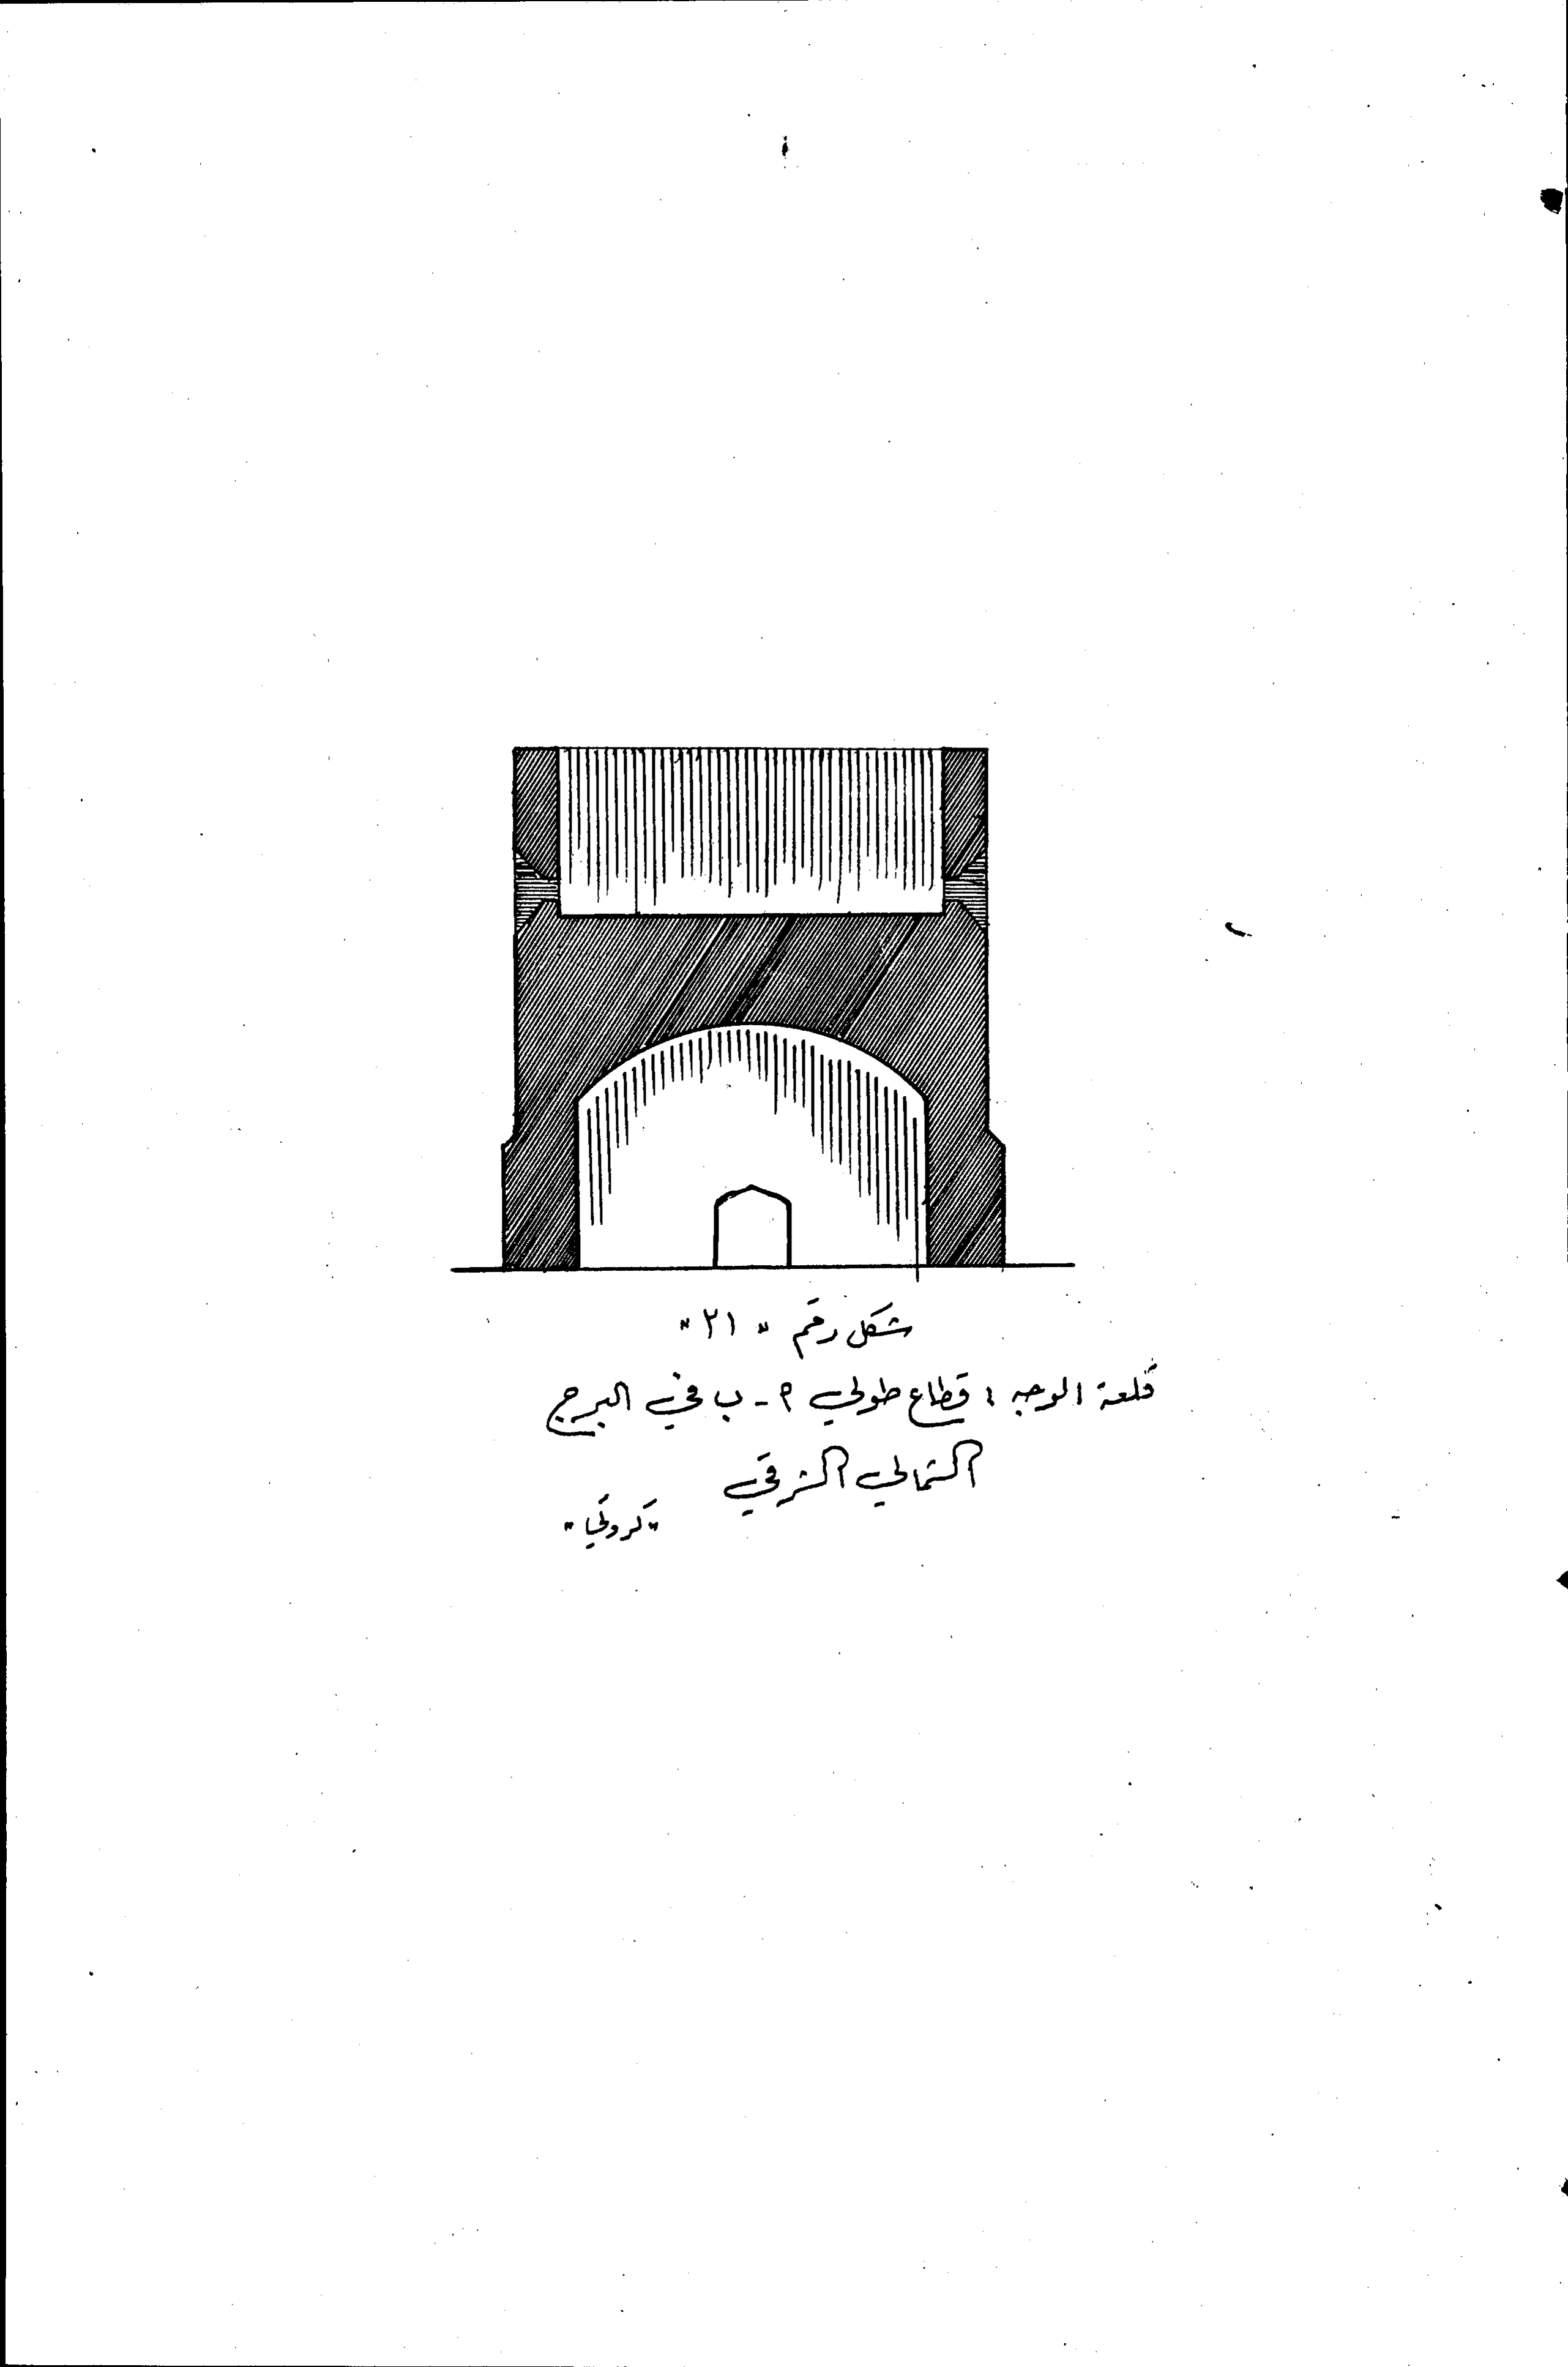 شكل رقم "٢١"
قلعة الوجه : قطاع طولي م - ب في البرج
الشمالي الشرقي
"كروكي"